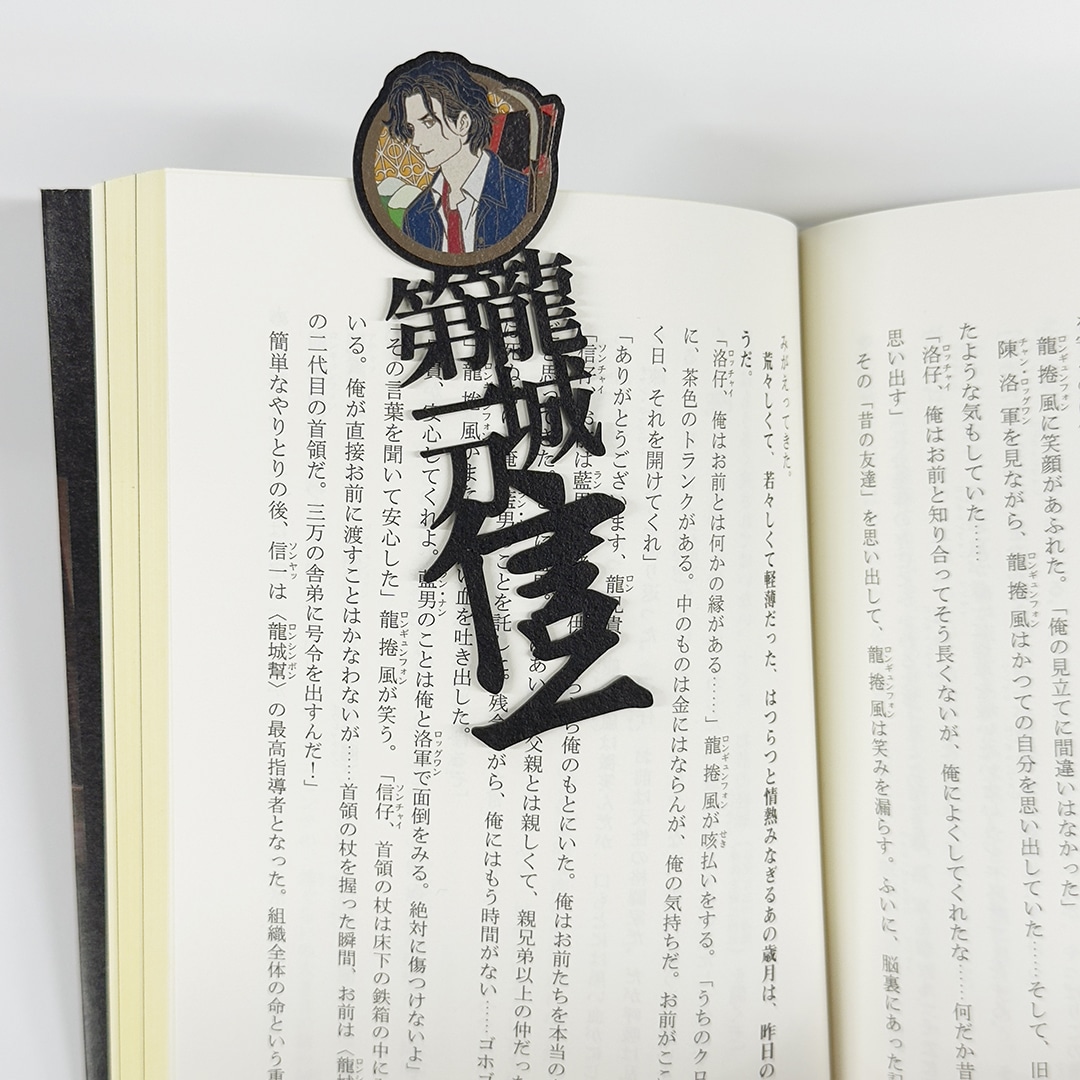 龍城
第一刀
信一
ロンギュンフォン
龍捲風に笑顔があふれた。「俺の見立てに間違いはなかった」
チャン・ロッグワン ロンギュンフォン
陳洛軍を見ながら、龍捲風はかつての自分を思い出していた……そして、旧
たような気もしていた……
ロッチャイ
「洛仔、俺はお前と知り合ってそう長くないが、俺によくしてくれたな……何だか昔
思い出す」
ロンギュンフォン
その「昔の友達」を思い出して、龍捲風は笑みを漏らす。ふいに、脳裏にあった記
みがえってきた。
荒々しくて、若々しくて軽薄だった、はつらつと情熱みなぎるあの歳月は、昨日の
うだ。
ロッチャイ ロンギュンフォン せき
「洛仔、俺はお前とは何かの縁がある……」龍捲風が咳払いをする。「うちのク
に、茶色のトランクがある。中のものは金にはならんが、俺の気持ちだ。お前がここ
く日、それを開けてくれ」
ロン
「ありがとうございます、龍兄貴
ソンチャイ ラン
「信仔、お
ら俺のもとにいた。俺はお前たちを本当の
父親とは親しくて、親兄弟以上の仲だっ
ことを託
がら、俺にはもう時間がない……ゴホゴ
ロンギュンフォン
龍捲風
血を吐き出した。
ロッグワン
心してくれよ。藍男のことは俺と洛軍で面倒をみる。絶対に傷つけないよ」
ロンギュンフォン ソンチャイ
その言葉を聞いて安心した」龍捲風が笑う。「信仔、首領の杖は床下の鉄箱の中に
いる。俺が直接お前に渡すことはかなわないが……首領の杖を握った瞬間、お前は〈龍城
の二代目の首領だ。三万の舎弟に号令を出すんだ！」
ソンヤッ ロンシンボン
簡単なやりとりの後、信一は〈龍城幫〉の最高指導者となった。組織全体の命という重